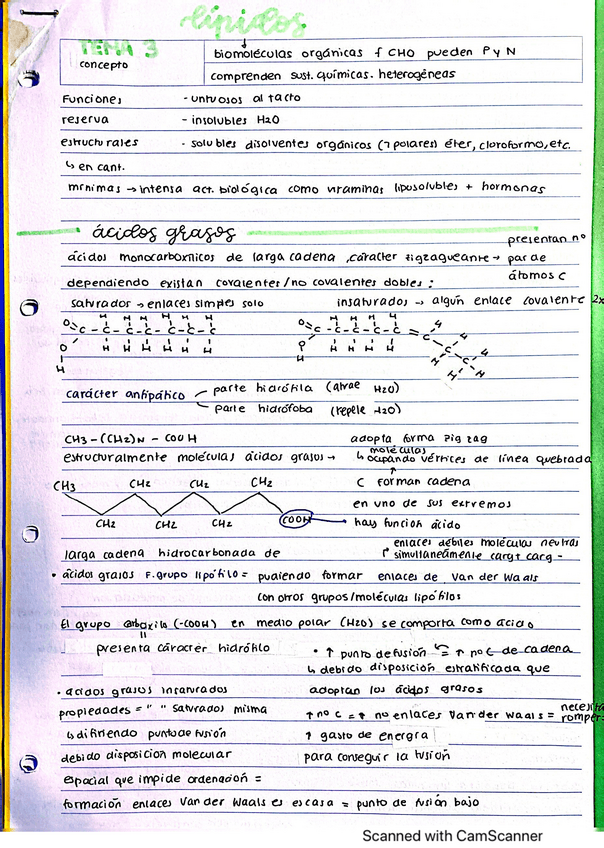 lípidos
TEMA 3
concepto
biomoléculas orgánicas f CHO pueden P y N
comprenden sust. químicas. heterogéneas
Funciones - untuosos al tacto
reserva - insolubles H2O
estructurales - solubles disolventes orgánicos (¬ polares) éter, cloroformo, etc.
↳ en cant.
mínimas → intensa act. biológica como vitaminas liposolubles + hormonas
ácidos grasos
presentan nº
ácidos monocarboxílicos de larga cadena, carácter zigzagueante → par de
átomos C
dependiendo existan covalentes/no covalentes dobles :
saturados → enlaces simples solo insaturados → algún enlace covalente 2x
H H H H H H H H H
O C - C - C - C - C - C O C - C - C - C - C = C H
O H H H H H O H H H H C H
H H C H
H H
carácter antipático parte hidrófila (atrae H2O)
parte hidrófoba (repele H2O)
CH3 - (CH2)N - COOH adopta forma zig zag
estructuralmente moléculas ácidos grasos → ↳ ocupando vértices de línea quebrada
moléculas
CH3 CH2 CH2 CH2 C forman cadena
en uno de sus extremos
CH2 CH2 CH2 COOH hay función ácido
enlaces débiles moléculas neutras
larga cadena hidrocarbonada de simultáneamente carg+ carg -
• ácidos grasos F. grupo lipófilo = pudiendo formar enlaces de Van der Waals
con otros grupos/moléculas lipófilos
El grupo carboxilo (-COOH) en medio polar (H2O) se comporta como ácido
presenta carácter hidrófilo • ↑ punto de fusión = ↑ no C de cadena
↳ debido disposición estratificada que
• ácidos grasos insaturados adoptan los ácidos grasos
propiedades = " " saturados misma ↑ no C = ↑ no enlaces Van der Waals = necesita
romper
↳ difiriendo punto de fusión ↑ gasto de energía
debido disposición molecular para conseguir la fusión
espacial que impide ordenación =
formación enlaces Van der Waals es escasa = punto de fusión bajo
Scanned with CamScanner